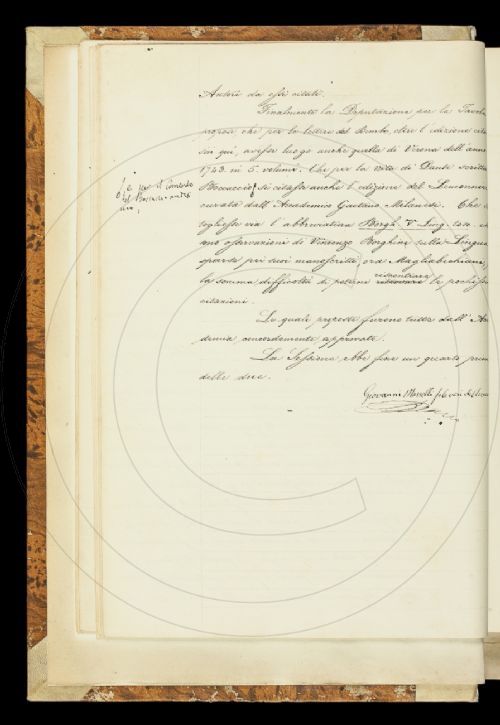 Autori da essi citati.
Finalmente la Deputazione per la Tavola
propose che per le lettere del Bembo, oltre l'edizione cita
sin qui, avesse luogo anche quella di Verona dell'anno
1743. in 5. volumi. Che per la vita di Dante scritta
Boccaccio si citasse anche l'edizione del Lemonnier
curata dall'Accademico Gaetano Milanesi. Che si
togliesse via l'abbreviatura Borgh. V. Ling.
osservazioni di Vincenzo Borghini sulla Lingua
sparse pei suoi manoscritti ora Magliabechiani,
la somma difficoltà di poterne riscontrare le
citazioni.
Le quali proposte furono tutte dall'Acca
demia concordemente approvate.
La Sessione ebbe fine un quarto prima
delle due.
Giovanni
e per il Comento
del Boccaccio